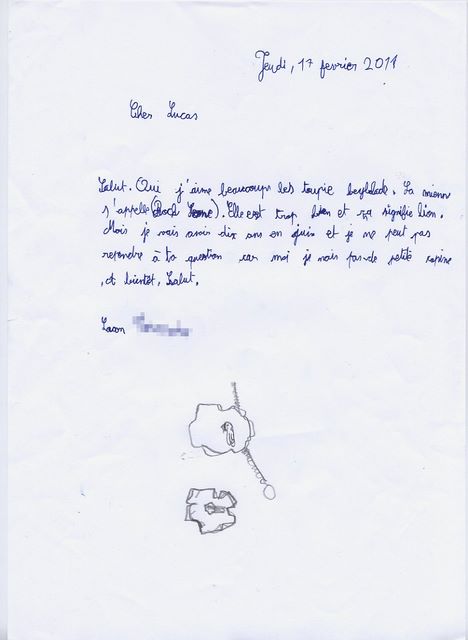 Jeudi, 17 fevrier 2011
Cher Lucas
Salut. Oui j'aime beaucoup les toupie beyblade. La mienne
s'appelle (Rock Leone). Elle est trop bien et sa signifie lion.
Mois je vais avoir dix ans en juin et je ne peut pas
repondre à ta question car moi je nais pas de petite copine
. A bientôt, Salut.